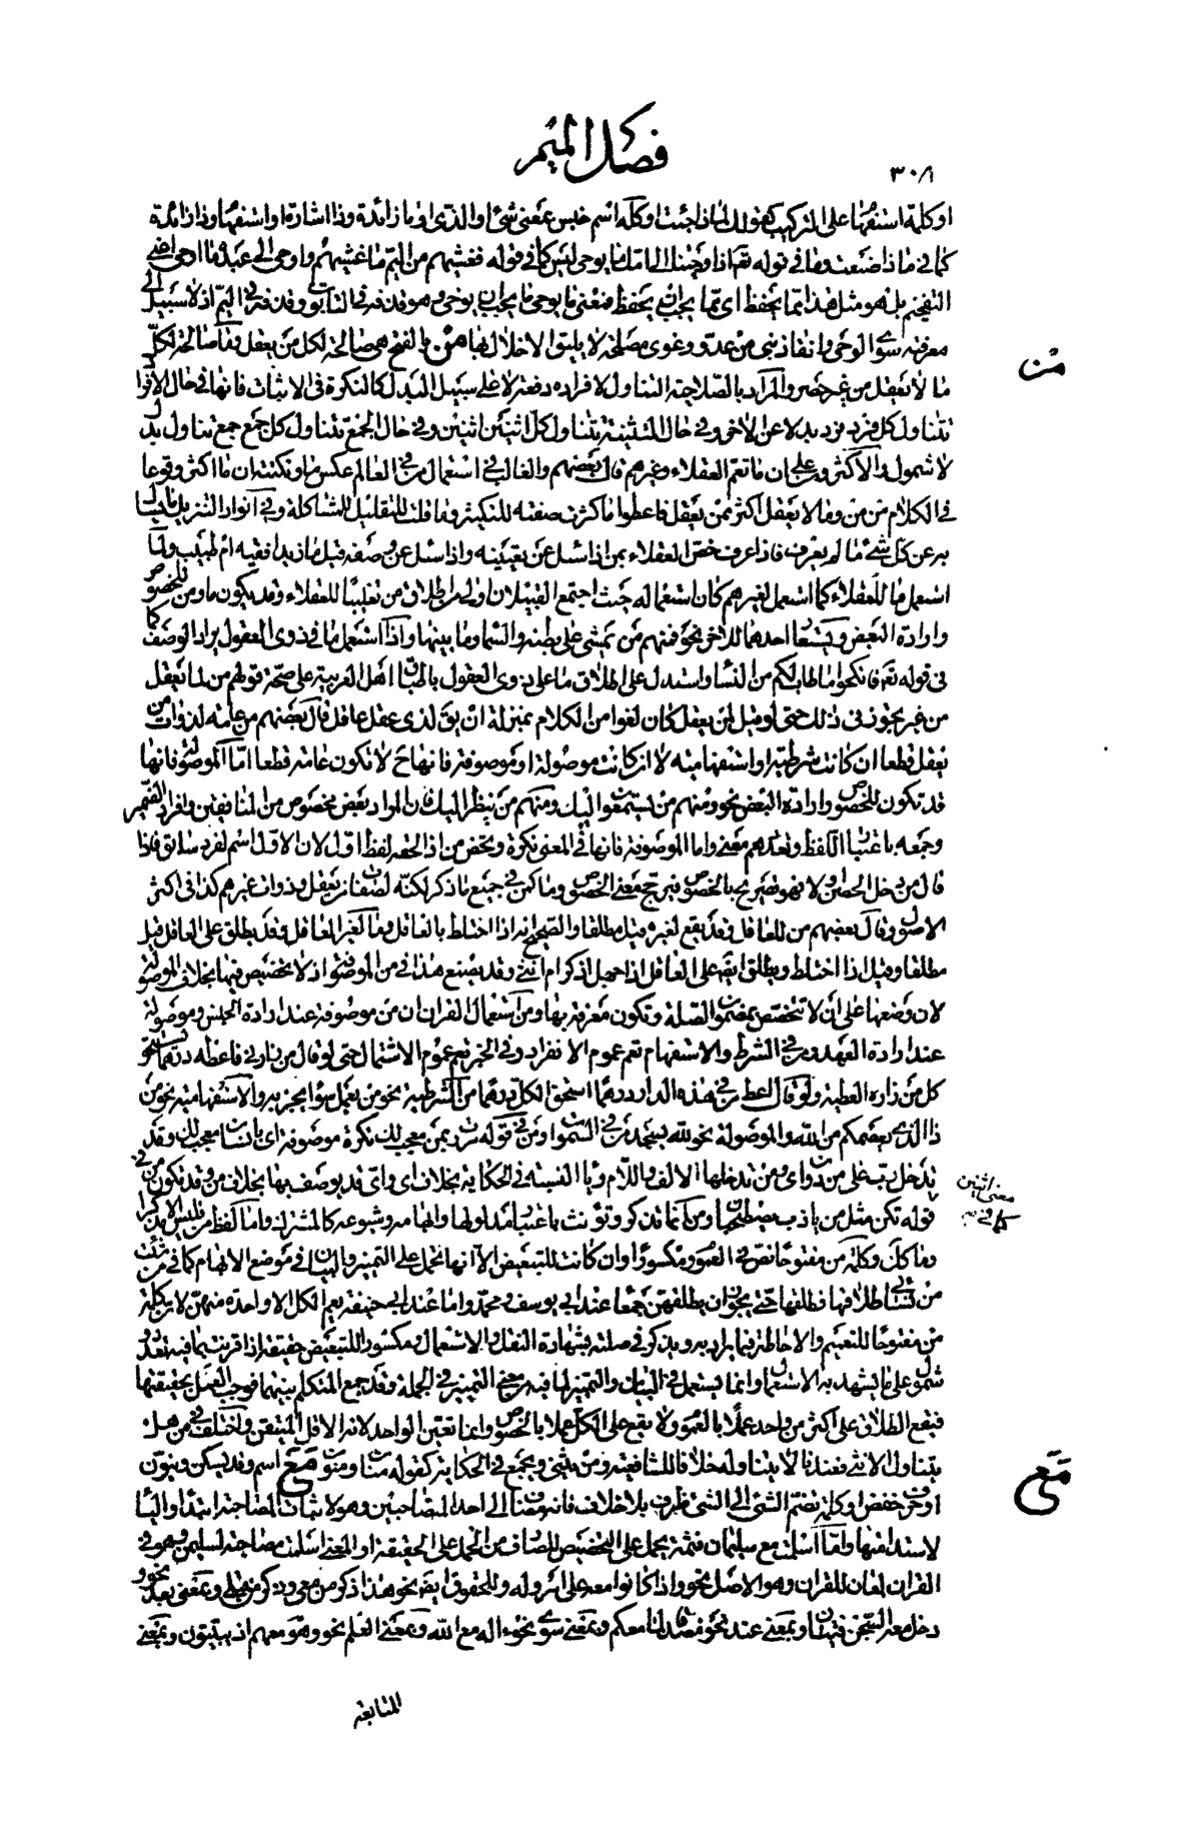 فصل الميم
٣٠٨
او كلمة استفهاما على التركيب كقولك لماذا جئت او كله اسم جنس بمعنى شئ او الذى او ما زائدة وذا اشارة او استفهاما وذا زائدة
كما فى ماذا صنعت وما فى قوله تعم اذ اوحينا الى امك ما يوحى ليس كما فى قوله فغشيهم من اليم ما غشيهم واوحى الى عبده ما اوحى اعنى
التفخيم بل هو مثل هذا مما يحفظ اى مما يجب ان يحفظ فمعنى ما يوحى ما يجب ان يوحى وهو قذفه فى التابوت وقذفه فى اليم اذ لا سبيل الى
معرفته سوى الوحى وانقاذ نبى من عدو وغوى مصلحة لا يليق الاخلال بها من بالفتح هى صالحة لكل من يعقل وما صالحة لكل
ما لا يعقل من غير حصر والمراد بالصلاحية التناول لافراده دفعة لا على سبيل البدل كالنكرة فى الاثبات فانها فى حال الافراد
تتناول كل فرد فرد بدلا عن الاخر وفى حال التثنية تتناول كل اثنين اثنين وفى حال الجمع تتناول كل جمع جمع تناول بدل
لا شمول والاكثرون على ان ما تعم العقلاء وغيرهم قال بعضهم والغالب فى استعمال من فى العالم عكس ما ونكتته ان ما اكثر وقوعا
فى الكلام من من وما لا يعقل اكثر ممن يعقل فاعطوا ما كثرت صفته للكثير وما قلت للتقليل للمشاكلة وفى انوار التنزيل ما يسال
به عن كل شئ ما لم يعرف فاذا عرف خص العقلاء بمن اذا سئل عن تعيينه واذا سئل عن وصفه قيل ما زيد افقيه ام طبيب ولما
استعمل ما للعقلاء كما استعمل لغيرهم كان استعماله حيث اجتمع القبيلان اولى من اطلاق من تغليبا للعقلاء وقد يكون ما ومن للخصوص
وارادة البعض ويستعمل احدهما للاخر نحو فمنهم من يمشى على بطنه والسماء وما بنيها واذا استعمل ما فى ذوى العقول يراد الوصف كما
فى قوله تعم فانكحوا ما طاب لكم من النساء واستدل على اطلاق ما على ذوى العقول باطباق اهل العربية على صحة قولهم من لما يعقل
من غير تجوز فى ذلك حتى لو قيل لمن يعقل كان لغوا من الكلام بمنزلة ان يق لذى عقل عاقل قال بعضهم من عامة لذوات من
يعقل قطعا ان كانت شرطية او استفهامية لا ان كانت موصولة او موصوفة فانها ح لا تكون عامة قطعا اما الموصولة فانها
قد تكون للخصوص وارادة البعض نحو ومنهم من يستمعون اليك ومنهم من ينظر اليك فان المراد بعض مخصوص من المنافقين وافراد الضمير
وجمعه باعتبار اللفظ وتعددهم معنى واما الموصوفة فانها فى المعنى نكرة ويختص من اذا الحقه لفظ اول لان الاول اسم لفرد سابق فاذا
قال من دخل الحصن اولا فهو تصريح بالخصوص فيرجح معنى الخصوص وما كمن فى جميع ما ذكر لكنه لصفات من يعقل وذوات غيرهم كذا فى اكثر
الاصول وقال بعضهم من للعاقل وقد يقع لغيره قيل مطلقا والصحيح انه اذا اختلط بالعاقل وما لغير العاقل وقد يطلق على العاقل قيل
مطلقا وقيل اذا اختلط ويطلق ايضا على العاقل اذا جهل اذكر ام انثى وقد يصنع هذا فى من الموصوفة اذ لا تخصيص فيها بخلاف الموصولة
لان وضعها على ان لا تتخصص بمضمون الصلة وتكون معرفة بها ومن استعمال القران ان من موصوفة عند ارادة الجنس وموصولة
عند ارادة العهد ومن فى الشرط والاستفهام تعم عموم الانفراد وفى الخبر تعم عموم الاشتمال حتى لو قال من زارنى فاعطه درهما استحق
كل من زاره العطية ولو قال اعط من فى هذه الدار درهما استحق الكل درهما من الشرطية نحو من يعمل سوءا يجز به والاستفهامية نحو من
ذا الذى يعصمكم من الله والموصولة نحو لله يسجد من فى السموات ومن فى قوله مررت بمن معجب لك نكرة موصوفة اى بانسان معجب لك وقد
تدخل رب على من دون اى ومن تدخلها الالف واللام وياء النسبة فى الحكاية بخلاف اى واى قد يوصف بها بخلاف من وقد تكون من فى
قوله تكن مثل من ياذئب يصطحبان ومن كما تذكر وتؤنث باعتبار مدلولها وابهامه وشيوعه كالمشترك واما لفظ من فليس الا مذكرا
وما كل وكلمة من مفتوحا نص فى العموم ومكسورا وان كانت للتبعيض الا انها تحمل على التمييز والبيان فى موضع الابهام كما فى من شئت
من نسائى طلاقها فطلقها حتى يجوز ان يطلقهن جمعا عند ابى يوسف ومحمد واما عند ابى حنيفة يعم الكل الا واحدة منهن لان كلمة
من مفتوحا للتعميم والاحاطة فيما يراد به ويذكر فى صلته بشهادة النقل والاستعمال ومكسورا للتبعيض حقيقة اذا قرنت بما فيه تعدد
شمول على ما يشهد به الاستعمال وانما يستعمل فى البيان والتمييز لما فيه من معنى التمييز فى الجملة وقد جمع المتكلم بينهما فوجب العمل بحقيقتها
فيقع الطلاق على اكثر من واحد عملا بالعموم ولا يقع على الكل عملا بالخصوص وانما تعين الواحد لانه الاقل المتيقن واختلف فى من هل
يتناول الانثى فعندنا لا يتناوله خلافا للشافعية ومن يثنى ويجمع فى الحكاية كقوله منان ومنون مع اسم وقد يسكن وينون
او حرف خفض او كلمة تضم الشئ الى الشئ ظرف بلا خلاف فانه مضاف الى احد المتصاحبين وهو لاثبات المصاحبة ابتداء والباء
لاستدامتها ولما اسلمت مع سليمان فثمة يحمل على التخصيص للصارف من الحمل على الحقيقة او المعنى اسلمت مصاحبة لسليمن وهو فى
القران لمعان للقران وهو الاصل نحو واذا كانوا معه على امر وله وللحقوق ايضا نحو هذا ذكر من معى وذكر من قبلى وبمعنى بعد نحو و
دخل معه السجن فتيان وبمعنى عند نحو مصدقا لما معكم وبمعنى سوى نحو ءاله مع الله وبمعنى العلم نحو وهو معهم اذ يبيتون وبمعنى
المتابعة
من
معنى اثنين
كما فى
مع